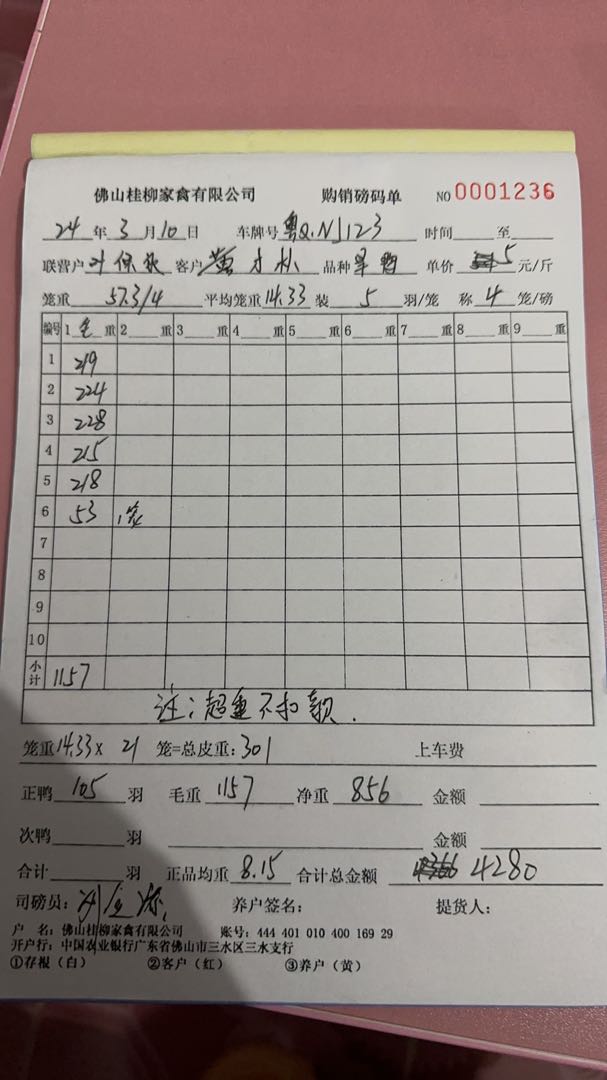 佛山桂柳家禽有限公司 购销磅码单 NO 0001236
24年3月10日 车牌号 粤Q.NJ123 时间 至
联营户 叶保 客户 黄才 品种 单价 5 元/斤
笼重 57.3/4 平均笼重 14.33 装 5 羽/笼 称 4 笼/磅
编号 1 毛 重 2 重 3 重 4 重 5 重 6 重 7 重 8 重 9 重
1 219
2 224
3 228
4 215
5 218
6 53 1笼
7
8
9
10
小计 1157
注：超重不扣款.
笼重 14.33 x 21 笼=总皮重：301 上车费
正鸭 105 羽 毛重 1157 净重 856 金额
次鸭 羽 金额
合计 羽 正品均重 8.15 合计总金额 4280
司磅员： 养户签名： 提货人：
户 名：佛山桂柳家禽有限公司 账号：444 401 010 400 169 29
开户行：中国农业银行广东省佛山市三水区三水支行
①存根（白） ②客户（红） ③养户（黄）